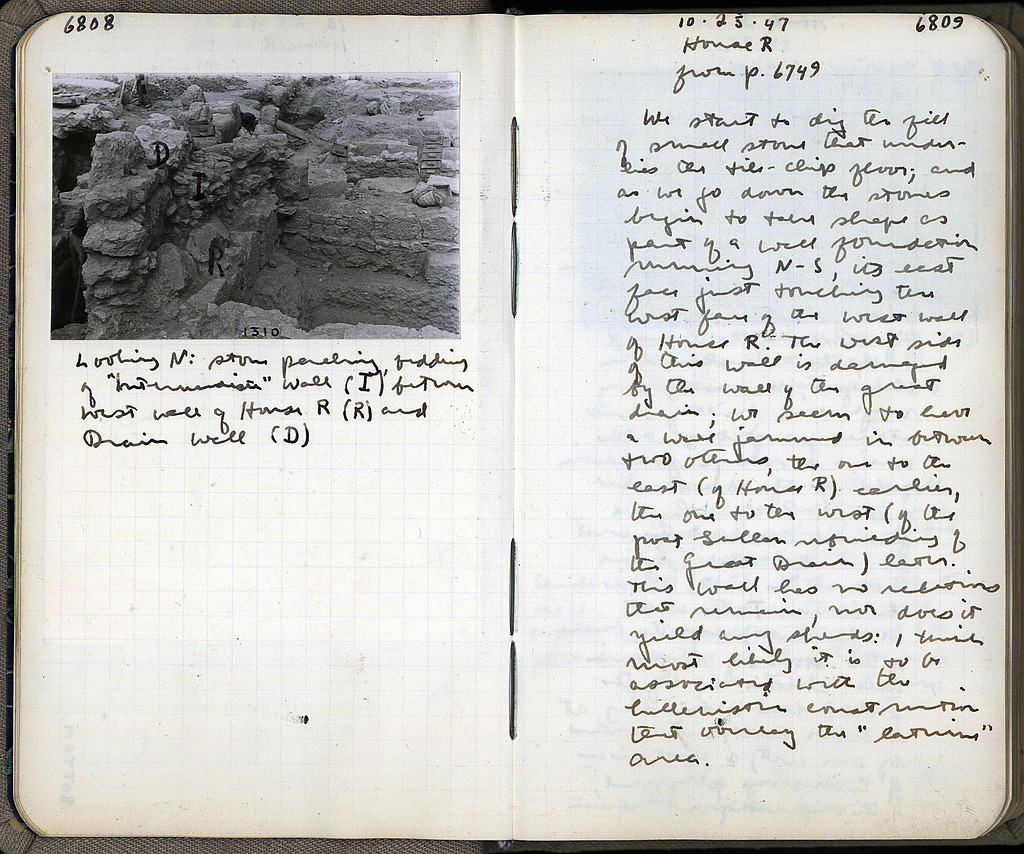 6808
D
I
R
1310
Looking N: stone packing, bedding
of "Intermediate" wall (I) between
west wall of House R (R) and
Drain wall (D)
10·25·47
6809
House R
from p. 6749
We start to dig the fill
of small stone that under-
lies the tile-chip floor; and
as we go down the stones
begin to take shape as
part of a wall foundation
running N-S, its east
face just touching the
west face of the west wall
of House R. The west side
of this wall is damaged
by the wall of the great
drain; we seem to have
a wall jammed in between
two others, the one to the
east (of House R) earlier,
the one to the west (of the
post Sullan rebuilding of
the Great Drain) later.
This wall has no relations
that remain, nor does it
yield any sherds: I think
most likely it is to be
associated with the
hellenistic construction
that overlay the "latrine"
area.